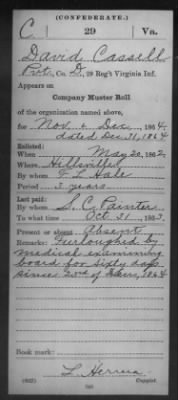 (CONFEDERATE.)
C. 29 Va.
David Cassell
Pvt, Co. D, 29 Reg't Virginia Inf.
Appears on
Company Muster Roll
of the organization named above,
for Nov & Dec, 1864.
dated Dec 31, 1864
Enlisted:
When May 20, 1862
Where Hillsville
By whom F. L. Hale
Period 3 years
Last paid:
By whom S. C. Painter
To what time Oct 31, 1863.
Present or absent Absent
Remarks: Furloughed by
medical examining
board for sixty days
since 23rd of 1864
Book mark:
L. Herren
(642) Copyist.